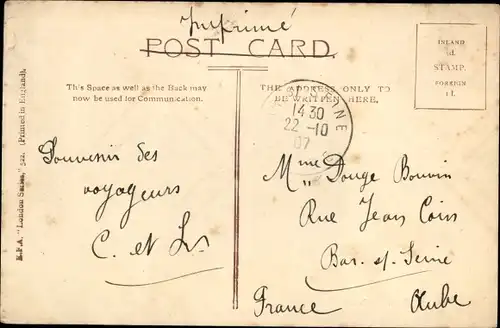 Imprimé
POST CARD.
This Space as well as the Back may
now be used for Communication.
THE ADDRESS ONLY TO
BE WRITTEN HERE.
INLAND
½d.
STAMP.
FOREIGN
1d.
E.F.A. "London Series," 522. (Printed in England).
14 30
22 -10
07
Souvenir des
voyageurs
C. et Ls
Mme Douge Bouvin
Rue Jean Coins
Bar. s/. Seine
France Aube